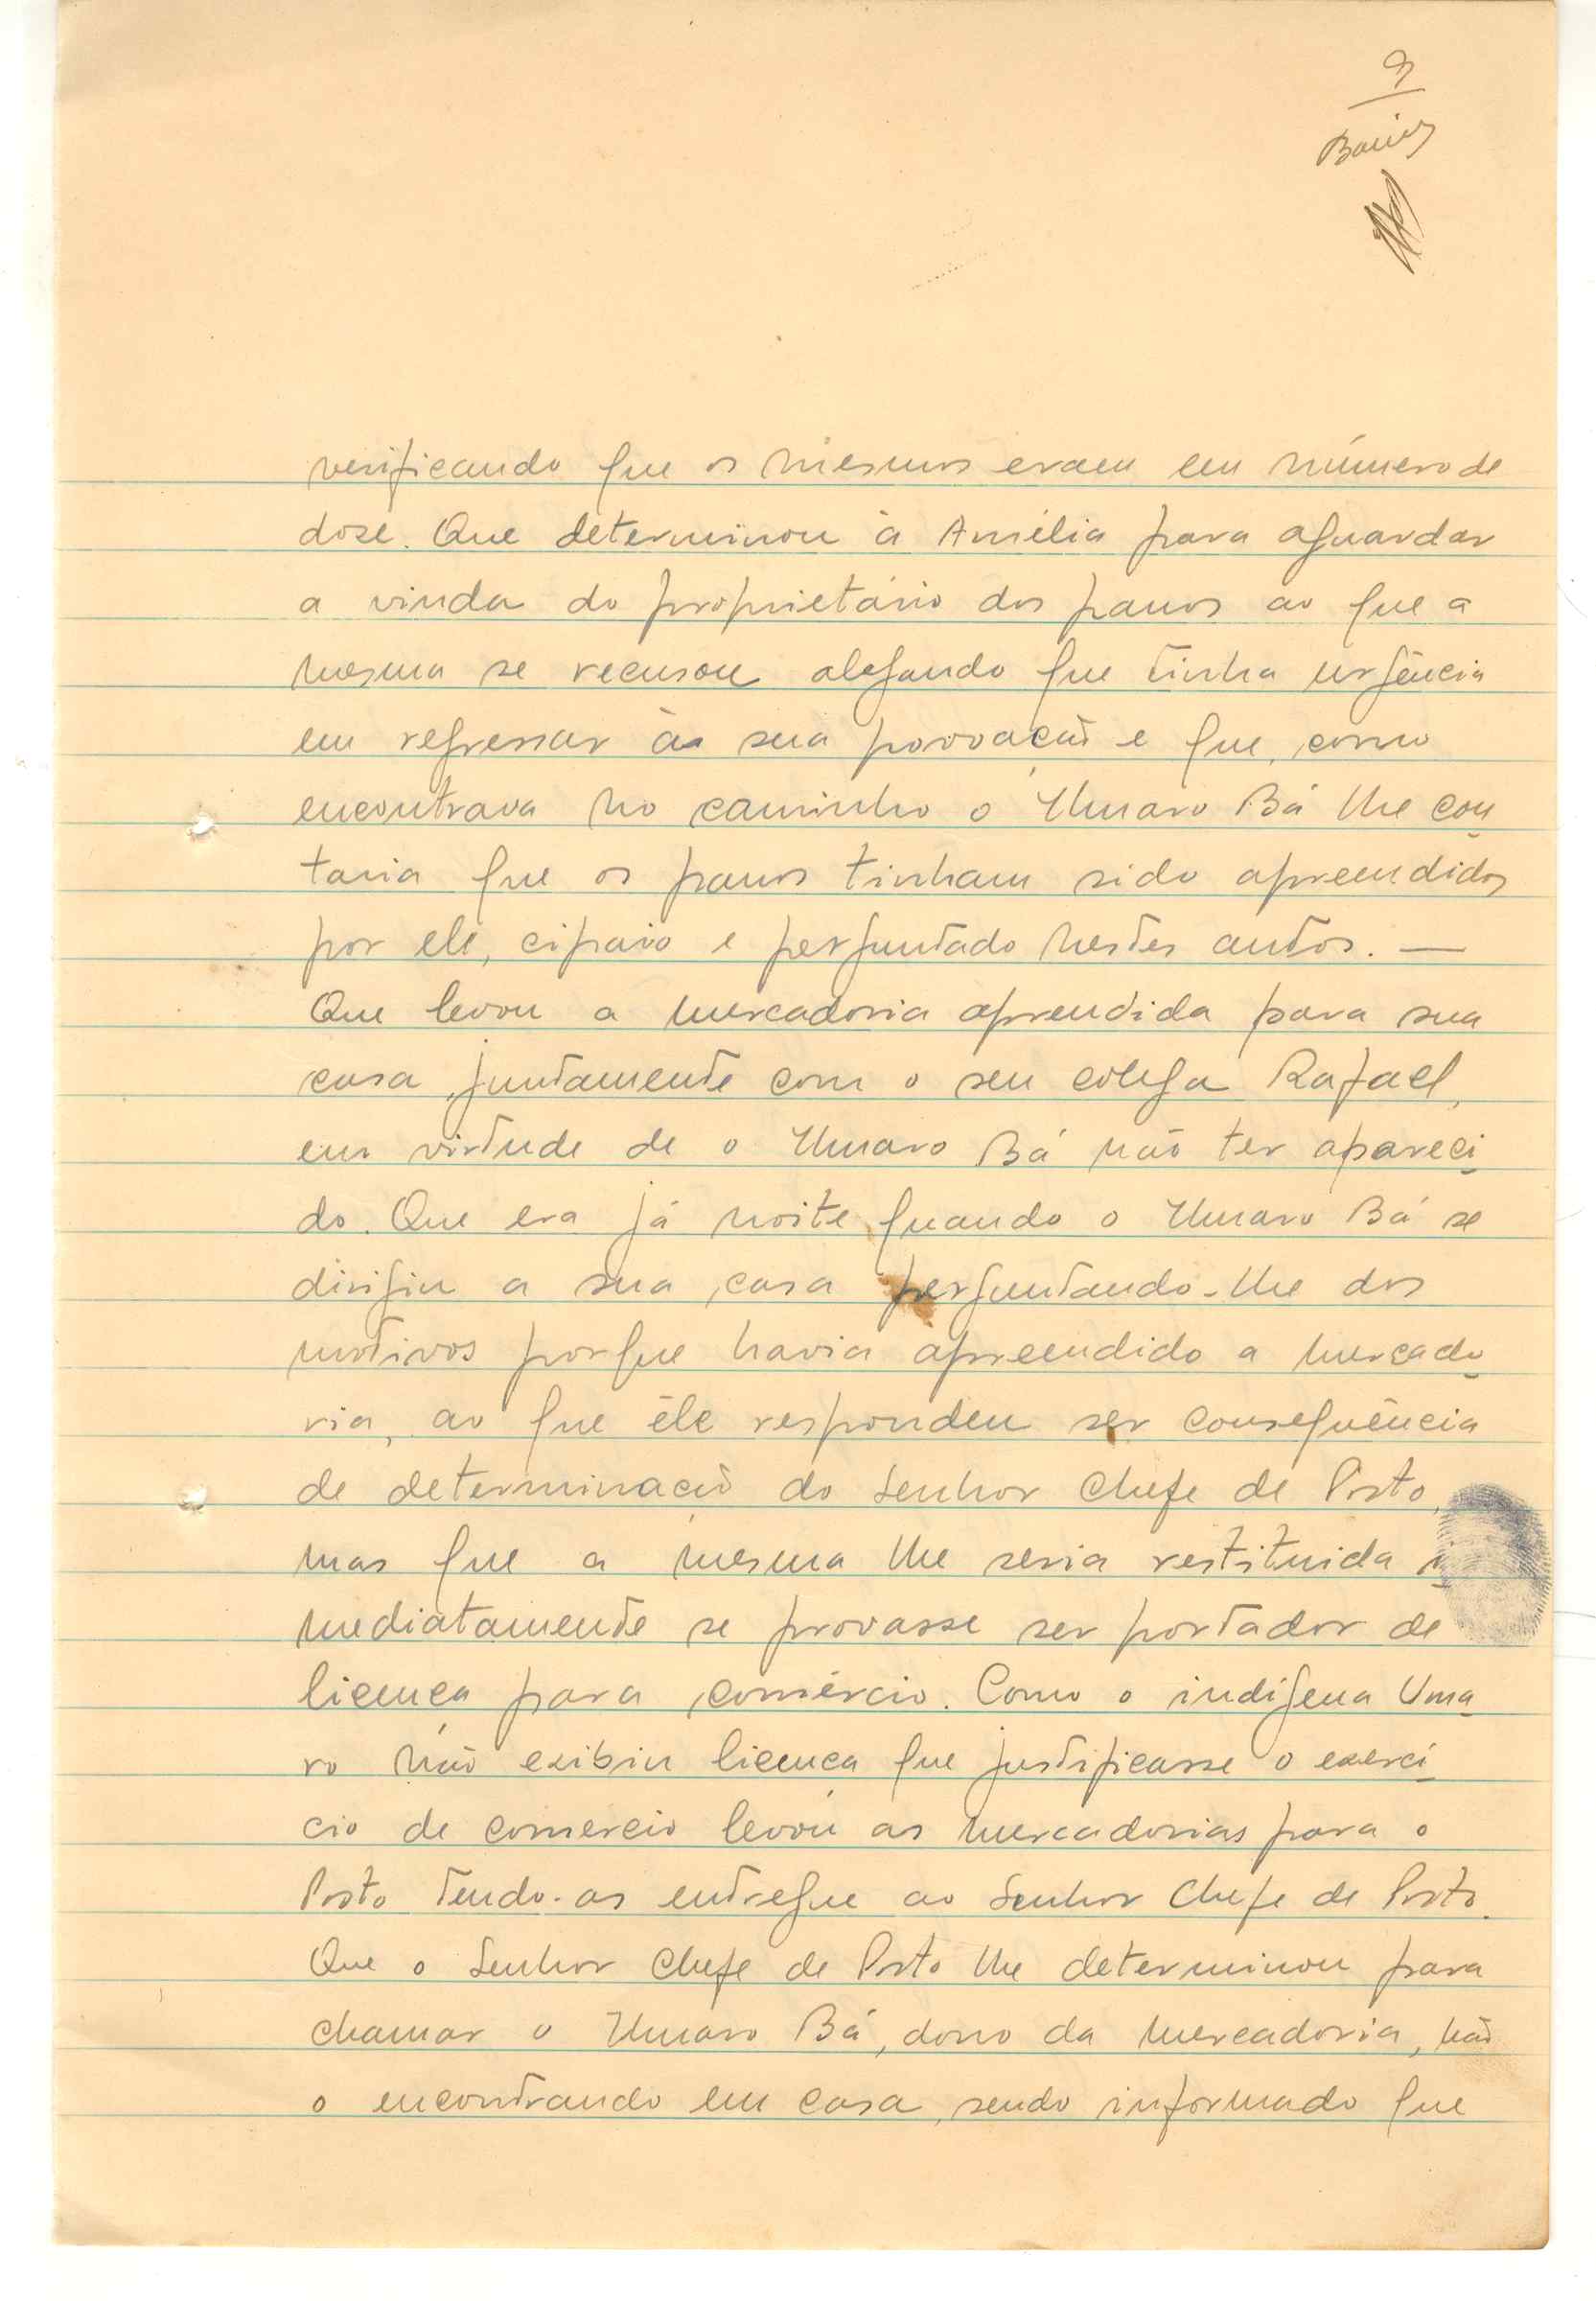 9
verificando que os mesmos eram em número de
doze. Que determinou à Amélia para aguardar
a vinda do proprietário dos panos ao que a
mesma se recusou alegando que tinha urgência
em regressar à sua povoação e que, como
encontrava no caminho o Umaro Bá lhe con
taria que os panos tinham sido apreendidos
por ele, cipaio e perguntado nestes autos. —
Que levou a mercadoria aprendida para sua
casa, juntamente com o seu colega Rafael,
em virtude de o Umaro Bá não ter apareci
do. Que era já noite quando o Umaro Bá se
dirigiu a sua casa perguntando-lhe dos
motivos porque havia apreendido a mercado
ria, ao que êle respondeu ser consequência
de determinação do Senhor Chefe de Posto,
mas que a mesma lhe seria restituida i
mediatamente se provasse ser portador de
licença para comércio. Como o indígena Uma
ro não exibiu licença que justificasse o exercí
cio de comercio levou as mercadorias para o
Posto tendo-as entregue ao Senhor Chefe de Posto.
Que o Senhor Chefe de Posto lhe determinou para
chamar o Umaro Bá, dono da mercadoria, não
o encontrando em casa, sendo informado que